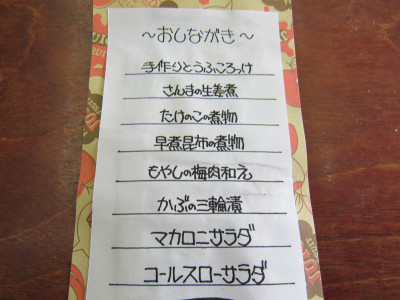 ～おしながき～
手作りとうふころっけ
さんまの生姜煮
たけのこの煮物
早煮昆布の煮物
もやしの梅肉和え
かぶの三輪漬
マカロニサラダ
コールスローサラダ